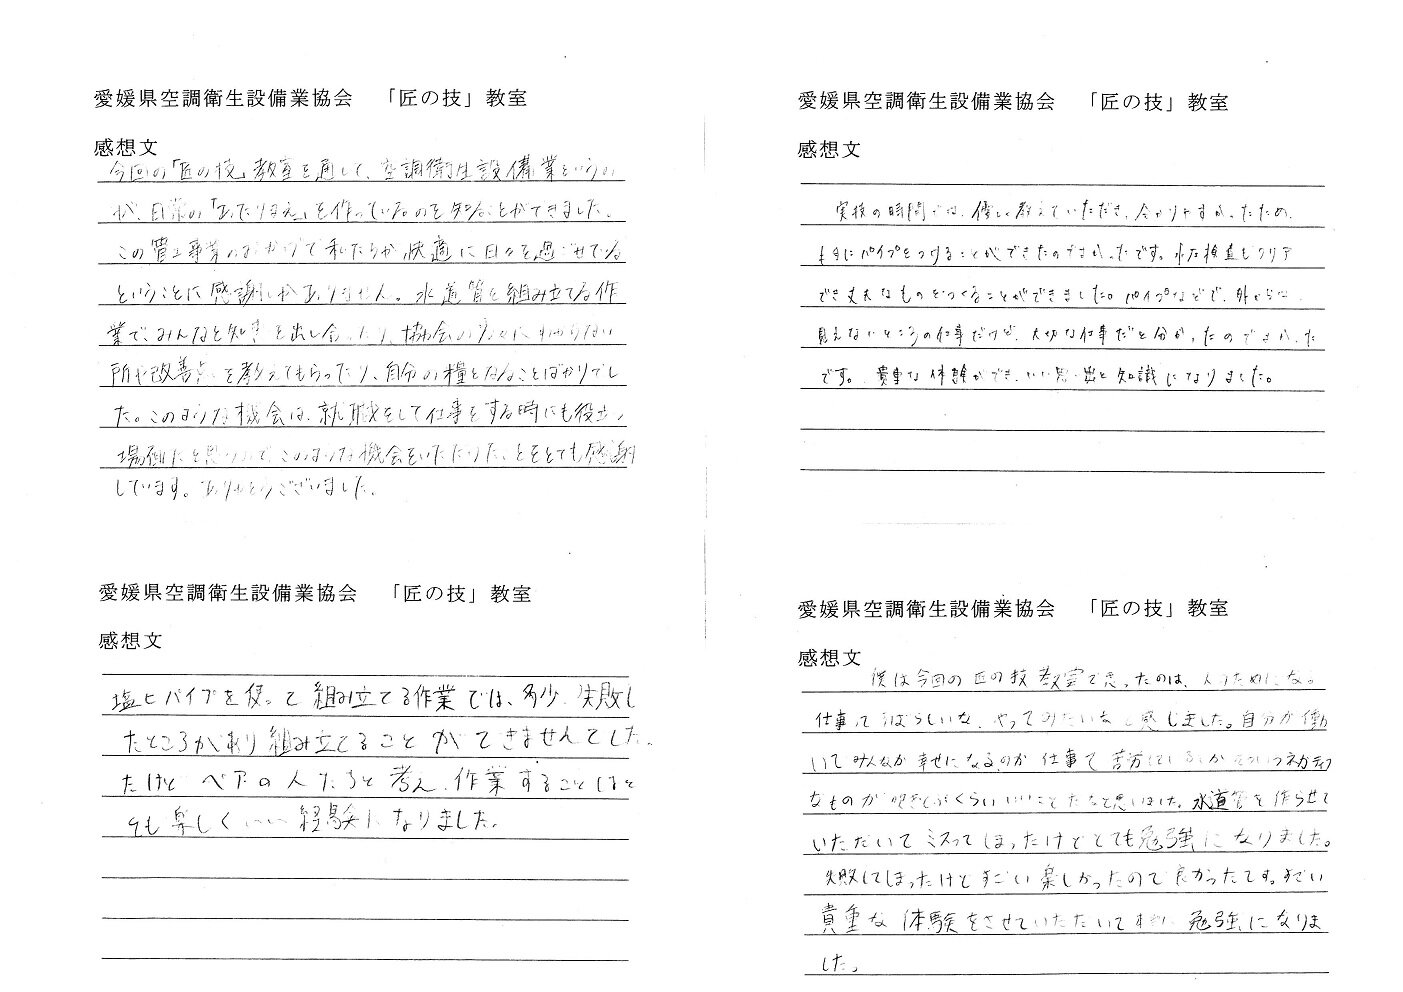 愛媛県空調衛生設備業協会　「匠の技」教室
感想文
今回の「匠の技」教室を通して、空調衛生設備業というの
が、日常の「あたりまえ」を作っているのを知ることができました。
この管工事業のおかげで私たちが快適に日々を過ごせている
ということに感謝しかありません。水道管を組み立てる作
業で、みんなと知恵を出し合ったり、協会の方々にわからない
所や改善点を教えてもらったり、自分の糧となることばかりでし
た。このような機会は、就職をして仕事をする時にも役立つ
場面だと思うので、このような機会をいただけたことをとても感謝
しています。ありがとうございました。
愛媛県空調衛生設備業協会　「匠の技」教室
感想文
塩ビパイプを使って組み立てる作業では、多少、失敗し
たところがあり組み立てることができませんでした。
だけど ペアの人たちと考え、作業することはと
ても楽しくいい経験になりました。
愛媛県空調衛生設備業協会　「匠の技」教室
感想文
実技の時間では、優しく教えていただき、分かりやすかったため、
上手にパイプをつけることができたのでよかったです。水圧検査もクリア
でき丈夫なものをつくることができました。パイプなどで、外からは
見えないところの仕事だけど、大切な仕事だと分かったのでよかった
です。貴重な体験ができ、いい思い出と知識になりました。
愛媛県空調衛生設備業協会　「匠の技」教室
感想文
僕は今回の匠の技教室で思ったのは、人のためになる
仕事ってすばらしいな、やってみたいなと感じました。自分が働
いてみんなが幸せになるのが仕事で苦労しているとかそういうネガティブ
なものが吹きとぶくらいいいことだなと思いました。水道管を作らせて
いただいてミスってしまったけどとても勉強になりました。
失敗してしまったけどすごい楽しかったので良かったです。すごい
貴重な体験をさせていただいて 勉強になりま
した。